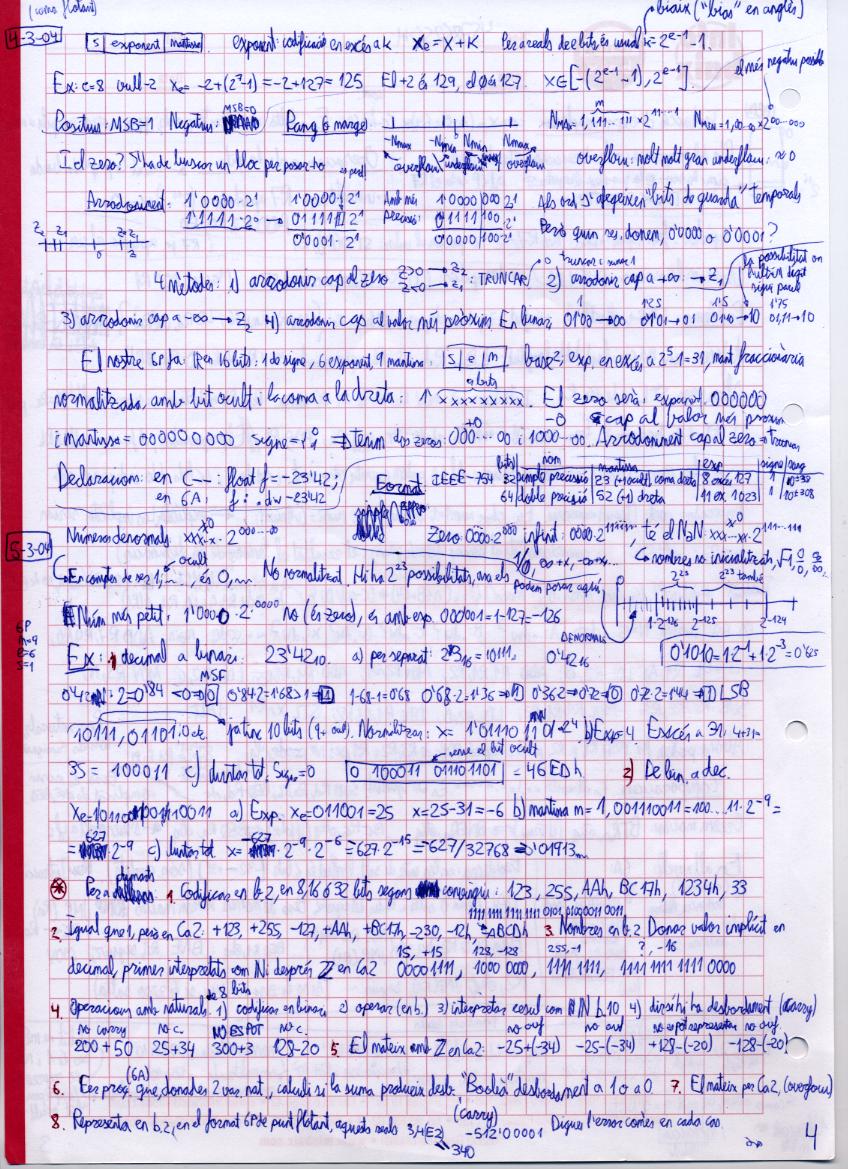 (coma flotant)
biaix ("bias" en anglès)
4-3-04
s exponent mantissa exponent: codificació en excés a k Xe = X + K Per a reals de e bits és usual k = 2^(e-1) - 1.
el més negatiu possible
Ex: e=8 vull -2 Xe = -2+(2^7-1) = -2+127 = 125 El +2 és 129, el 0 és 127. X∈[-(2^(e-1)-1), 2^(e-1)]
Positius: MSB=1 Negatius: MSB=0 Rang o marge: -Nmax -Nmin Nmin Nmax
overflow underflow overflow
I el zero? S'ha de buscar un lloc per posar-ho overflow: molt molt gran underflow: ≈0
Arrodoniment: 1'0000·2^1 1'0000·2^1 Amb més 1'0000 000·2^1 "bits de guarda" temporals
1'1111·2^0 → 0'11111·2^1 precisió: 0'1111 100·2^1
0'0001·2^1 0'0000 100·2^1 Però quin res. donem, 0'0000 o 0'0001?
4 mètodes: 1) arrodonir cap al zero z>0 → z2 z<0 → z1 : TRUNCAR 2) arrodonir cap a +∞ → z1
1 1'25 1'5 1'75
3) arrodonir cap a -∞ → z2 4) arrodonir cap al valor més pròxim En binari 01'00→00 01'01→01 01'10→10 01,11→10
El nostre 6P fa: R en 16 bits: 1 de signe, 6 exponent, 9 mantissa: s e m base 2, exp. en excés a 2^5-1=31, mant fraccionària
9 bits
normalitzada, amb bit ocult i la coma a la dreta: 1' xxxxxxxxx. El zero serà: exponent 000000
+0 -0 cap al valor més pròxim
i mantissa = 000000000 signe = 1 o 0 ⇒ tenim dos zeros: 000...00 i 1000...00. Arrodoniment cap al zero = truncar
Declaracions: en C--: float f = -23'42;
en 6A: f: .dw -23'42
Format IEEE-754
bits nom mantissa exp signe rang
32 simple precisió 23 (+1 ocult), coma dreta 8 excés 127 1 10^±38
64 doble precisió 52 (+1) dreta 11 ex 1023 1 10^±308
5-3-04
Números denormals: xxx...x·2^000...00 Zero: 0000·2^000 infinit: 0000·2^11111, té el NaN xxx...xx·2^111...111
1/0, ∞+x, -∞+x... nombres no inicialitzats, √-1, 0/0, ∞/∞
ocult
En comptes de ser 1,..., és 0,... No normalitzat. Hi ha 2^23 possibilitats, ara els podem posar aquí
2^23 2^23 també
0 1·2^-126 2^-125 2^-124
DENORMALS
Núm més petit: 1'0000·2^0000 no (és zero), és amb exp. 000001 = 1-127 = -126
6P
m=9
e=6
s=1
Ex: 1 decimal a binari: 23'42 10. a) per separat: 23 = 10111 0'42 0'1010 = 1·2^-1 + 1·2^-3 = 0'625
0'42·2 = 0'84 <0 ⇒ 0 MSF 0'84·2 = 1'68 >1 ⇒ 1 1'68-1 = 0'68 0'68·2 = 1'36 ⇒ 1 0'36·2 ⇒ 0'72 ⇒ 0 0'72·2 = 1'44 ⇒ 1 LSB
10111,01101 ja tinc 10 bits (9 + ocult). Normalitzar: x = 1'01110 1101·2^4 b) Exp = 4 Excés a 31, 4+31=
treure el bit ocult
35 = 100011 c) Juntar tot, Signe = 0 0 100011 011101101 = 46EDh 2) De bin. a dec.
a) Exp. Xe = 011001 = 25 x = 25-31 = -6 b) mantissa m = 1,001110011 = 100...11·2^-9 =
= 627·2^-9 c) Juntar tot x = -627·2^-9·2^-6 = -627·2^-15 = -627/32768 = -0'01913...
1. Codificar en b.2, en 8, 16 o 32 bits segons convingui: 123, 255, AAh, BC17h, 1234h, 33
1111 1111 1111 1111 0101 0100 0011 0011
2. Igual que 1, però en Ca2: +123, +255, -127, +AAh, +BC17h, -230, -12h, -ABCDh 3. Nombres en b.2. Donar valor implícit en
15, +15 128, -128 255, -1 ?, -16
decimal, primer interpretats com N i després Z en Ca2 00001111, 1000 0000, 1111 1111, 1111 1111 1111 0000
4. Operacions amb naturals de 8 bits 1) codificar en binari 2) operar (en b.) 3) interpretar result com N b.10 4) dir si hi ha desbordament (carry)
no carry no c. NO ES POT no c. no ovf no ovf no es pot representar no ovf.
200+50 25+34 300+3 128-20 5. El mateix amb Z en Ca2: -25+(-34) -25-(-34) +128-(-20) -128-(-20)
6. Fer prog. (6A) que, donades 2 var. nat., calculi si la suma produeix desb. "Booleà" desbordament a 1 o a 0. 7. El mateix per Ca2, (overflow)
(carry)
8. Representa en b.2, en el format 6P de punt flotant, aquests reals 3,4(E2) -512'00001 Digues l'error comès en cada cas.
340
4